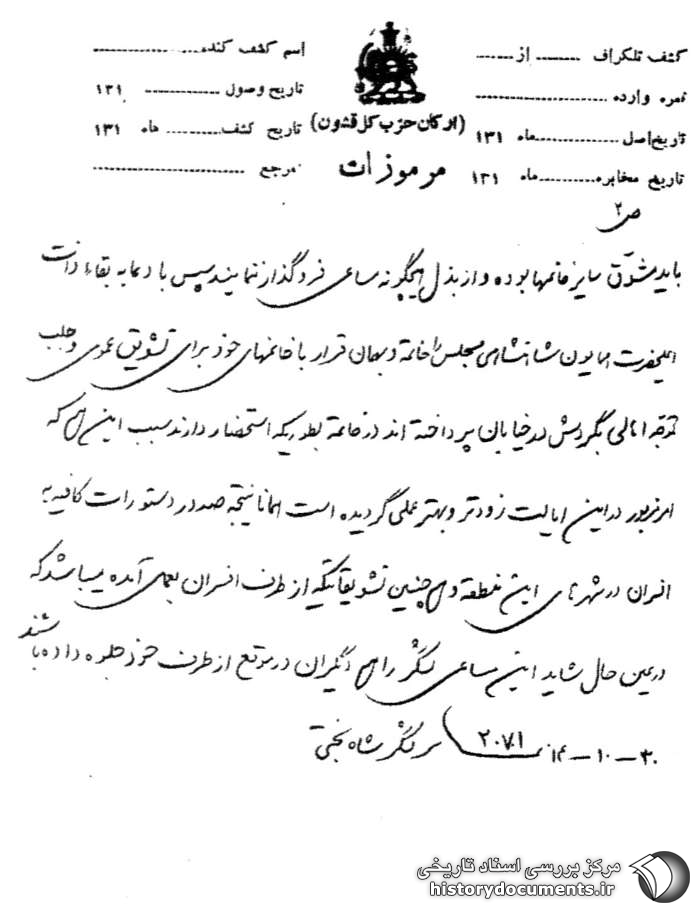 کشف تلگراف ........ از ........ اسم کشف کننده ........
نمره وارده ........ تاریخ وصول ........ ۱۳۱
تاریخ اصل ........ ماه ۱۳۱ (ارکان حزب کل قشون) تاریخ کشف ........ ماه ۱۳۱
تاریخ مخابره ........ ماه ۱۳۱ مرموزات مرجع ........
ص ۲
باید مشوق سایر خانمها بوده و از بذل هیچگونه مساعی فروگذار ننمایند سپس با دعا به بقاء ذات
اعلیحضرت همایون شاهنشاهی مجلس را خاتمه و بهمان قرار با خانمهای خود برای تشویق عمومی و جلب
توجه اهالی بگردش در خیابان پرداخته اند در خاتمه بطوریکه استحضار دارند سبب این هم که
امر مزبور در این ایالت زودتر و بهتر عملی گردیده است همانا نتیجه صدور دستورات کافیه به
افسران در شهرهای این منطقه و همچنین تشویقاتیکه از طرف افسران بعمل آمده میباشد که
در عین حال شاید این مساعی لشگر را هم دیگران در موقع از طرف خود جلوه داده باشند
۳۰-۱۰-۱۴ ۲۰۷۱ سرلشگر شاه بختی
مرکز بررسی اسناد تاریخی
historydocuments.ir